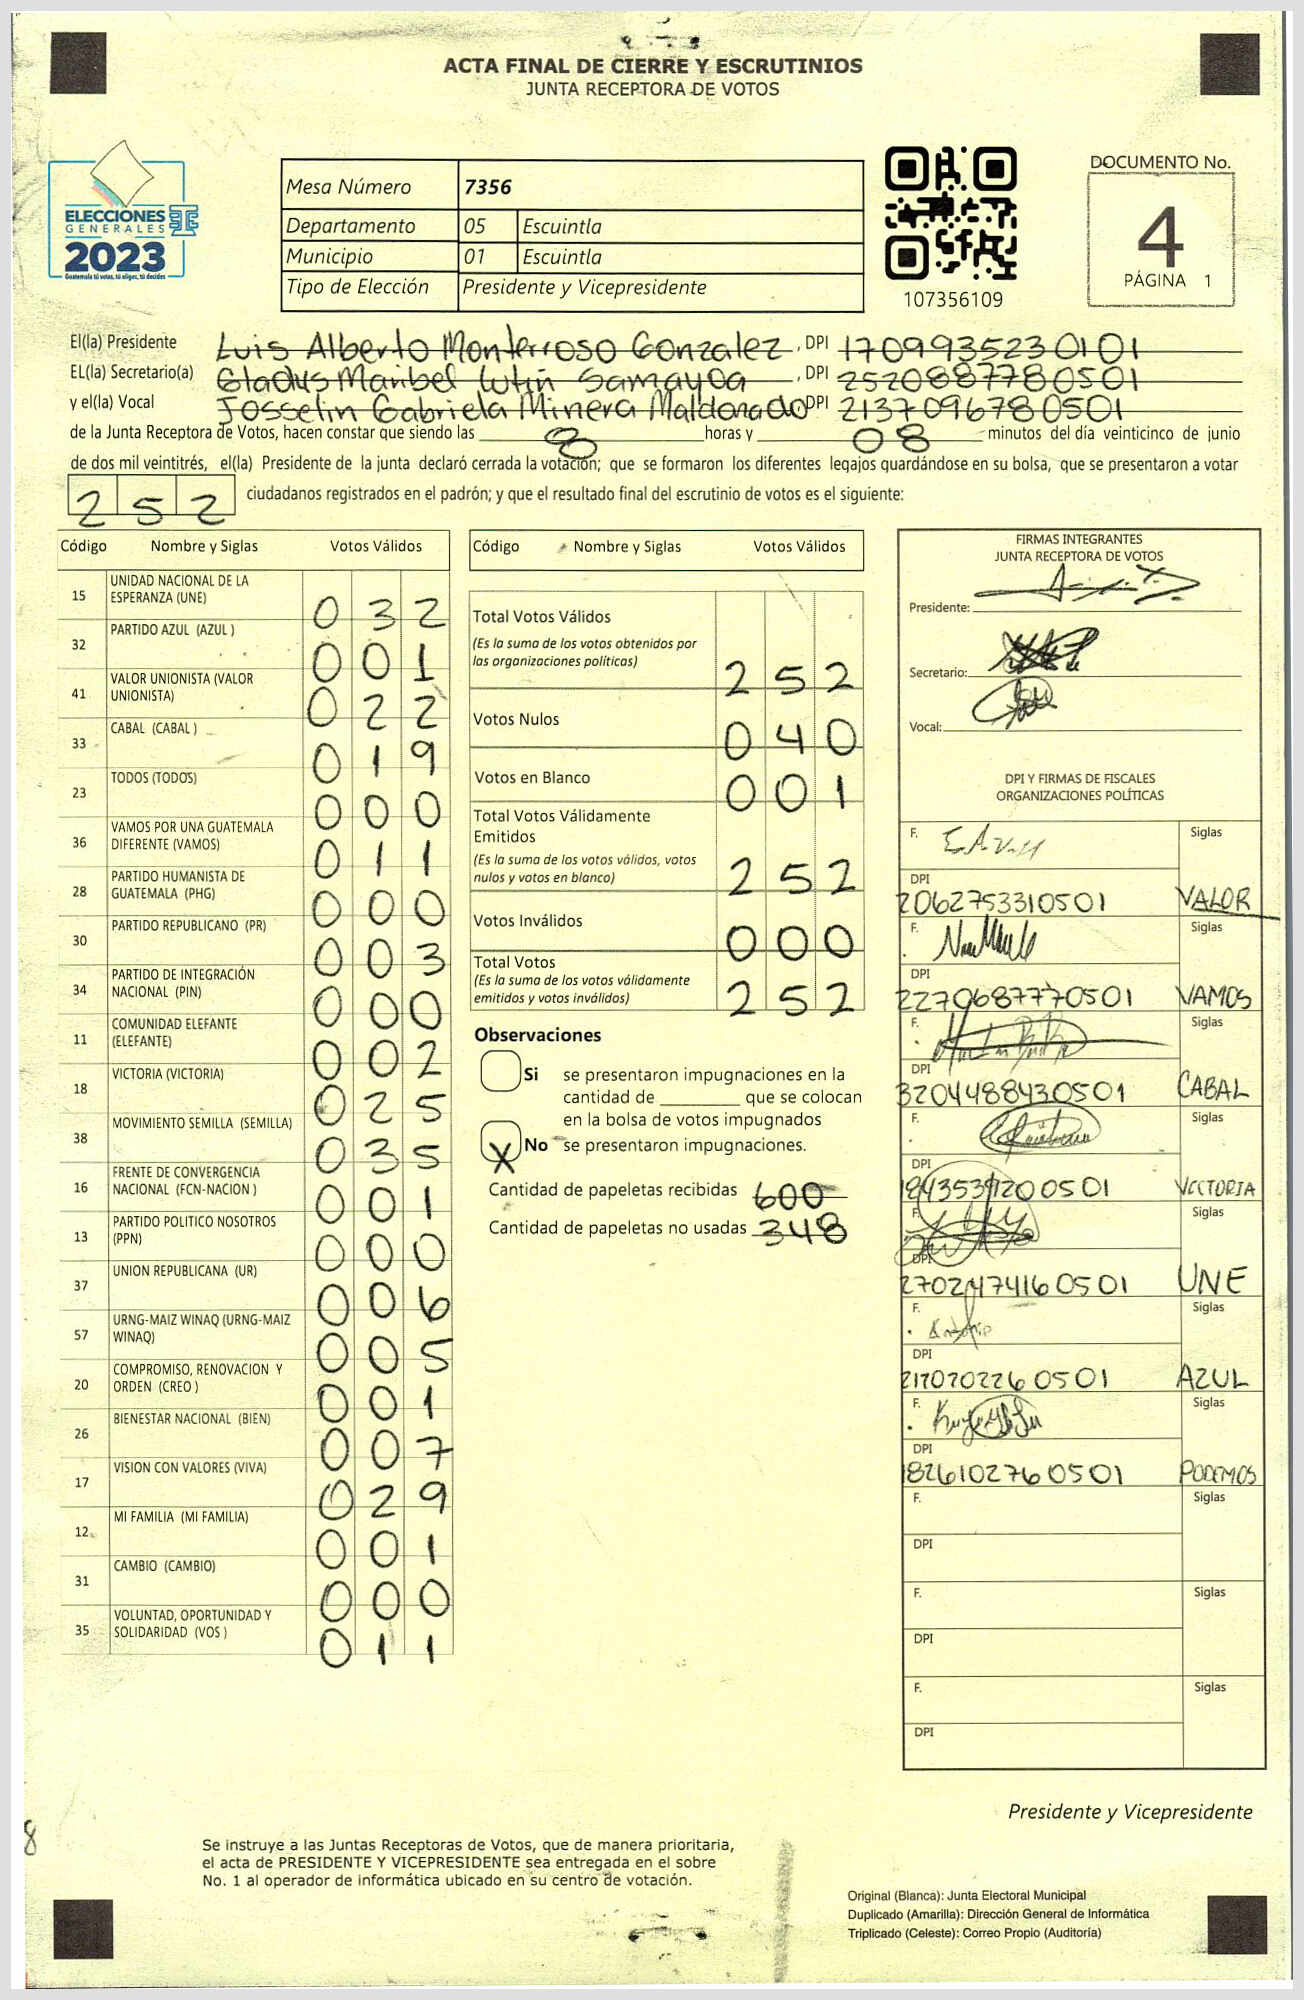 ACTA FINAL DE CIERRE Y ESCRUTINIOS
JUNTA RECEPTORA DE VOTOS
ELECCIONES
GENERALES
2023
Guatemala tú votas, tú eliges, tú decides
Mesa Número 7356
Departamento 05 Escuintla
Municipio 01 Escuintla
Tipo de Elección Presidente y Vicepresidente
107356109
DOCUMENTO No.
4
PÁGINA 1
El(la) Presidente Luis Alberto Monterroso Gonzalez, DPI 1709935230101
EL(la) Secretario(a) Gladys Maribel Samayoa, DPI 2520887780501
y el(la) Vocal Josselin Gabriela Minera Maldonado DPI 2137096780501
de la Junta Receptora de Votos, hacen constar que siendo las 8 horas y 08 minutos del día veinticinco de junio
de dos mil veintitrés, el(la) Presidente de la junta declaró cerrada la votación; que se formaron los diferentes legajos quardándose en su bolsa, que se presentaron a votar
252 ciudadanos registrados en el padrón; y que el resultado final del escrutinio de votos es el siguiente:
Código Nombre y Siglas Votos Válidos
15 UNIDAD NACIONAL DE LA ESPERANZA (UNE) 032
32 PARTIDO AZUL (AZUL ) 001
41 VALOR UNIONISTA (VALOR UNIONISTA) 022
33 CABAL (CABAL ) 019
23 TODOS (TODOS) 000
36 VAMOS POR UNA GUATEMALA DIFERENTE (VAMOS) 011
28 PARTIDO HUMANISTA DE GUATEMALA (PHG) 000
30 PARTIDO REPUBLICANO (PR) 003
34 PARTIDO DE INTEGRACIÓN NACIONAL (PIN) 000
11 COMUNIDAD ELEFANTE (ELEFANTE) 002
18 VICTORIA (VICTORIA) 025
38 MOVIMIENTO SEMILLA (SEMILLA) 035
16 FRENTE DE CONVERGENCIA NACIONAL (FCN-NACION ) 001
13 PARTIDO POLITICO NOSOTROS (PPN) 000
37 UNION REPUBLICANA (UR) 006
57 URNG-MAIZ WINAQ (URNG-MAIZ WINAQ) 005
20 COMPROMISO, RENOVACION Y ORDEN (CREO ) 001
26 BIENESTAR NACIONAL (BIEN) 007
17 VISION CON VALORES (VIVA) 029
12 MI FAMILIA (MI FAMILIA) 001
31 CAMBIO (CAMBIO) 000
35 VOLUNTAD, OPORTUNIDAD Y SOLIDARIDAD (VOS ) 011
Código Nombre y Siglas Votos Válidos
Total Votos Válidos
(Es la suma de los votos obtenidos por
las organizaciones políticas) 252
Votos Nulos 040
Votos en Blanco 001
Total Votos Válidamente
Emitidos
(Es la suma de los votos válidos, votos
nulos y votos en blanco) 252
Votos Inválidos 000
Total Votos
(Es la suma de los votos válidamente
emitidos y votos inválidos) 252
Observaciones
Si se presentaron impugnaciones en la
cantidad de ________ que se colocan
en la bolsa de votos impugnados
X No se presentaron impugnaciones.
Cantidad de papeletas recibidas 600
Cantidad de papeletas no usadas 348
FIRMAS INTEGRANTES
JUNTA RECEPTORA DE VOTOS
Presidente:
Secretario:
Vocal:
DPI Y FIRMAS DE FISCALES
ORGANIZACIONES POLÍTICAS
F. Siglas
DPI
2062753310501 VALOR
F. Siglas
DPI
2270687770501 VAMOS
F. Siglas
DPI
3204488430501 CABAL
F. Siglas
DPI
VICTORIA
F. Siglas
DPI
2702474160501 UNE
F. Siglas
DPI
AZUL
F. Siglas
DPI
1826102760501 PODEMOS
F. Siglas
DPI
F. Siglas
DPI
F. Siglas
DPI
Presidente y Vicepresidente
8
Se instruye a las Juntas Receptoras de Votos, que de manera prioritaria,
el acta de PRESIDENTE Y VICEPRESIDENTE sea entregada en el sobre
No. 1 al operador de informática ubicado en su centro de votación.
Original (Blanca): Junta Electoral Municipal
Duplicado (Amarilla): Dirección General de Informática
Triplicado (Celeste): Correo Propio (Auditoría)